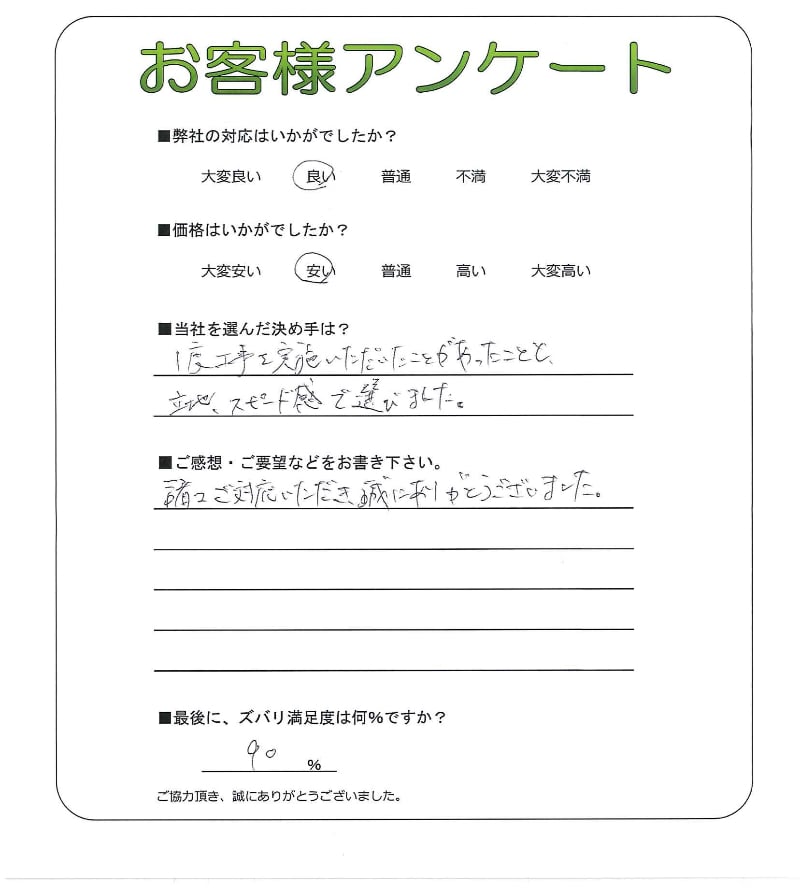 お客様アンケート
■弊社の対応はいかがでしたか？
大変良い 良い 普通 不満 大変不満
■価格はいかがでしたか？
大変安い 安い 普通 高い 大変高い
■当社を選んだ決め手は？
1度工事を実施いただいたことがあったことと、
立地、スピード感で選びました。
■ご感想・ご要望などをお書き下さい。
諸々ご対応いただき、誠にありがとうございました。
■最後に、ズバリ満足度は何%ですか？
90 %
ご協力頂き、誠にありがとうございました。